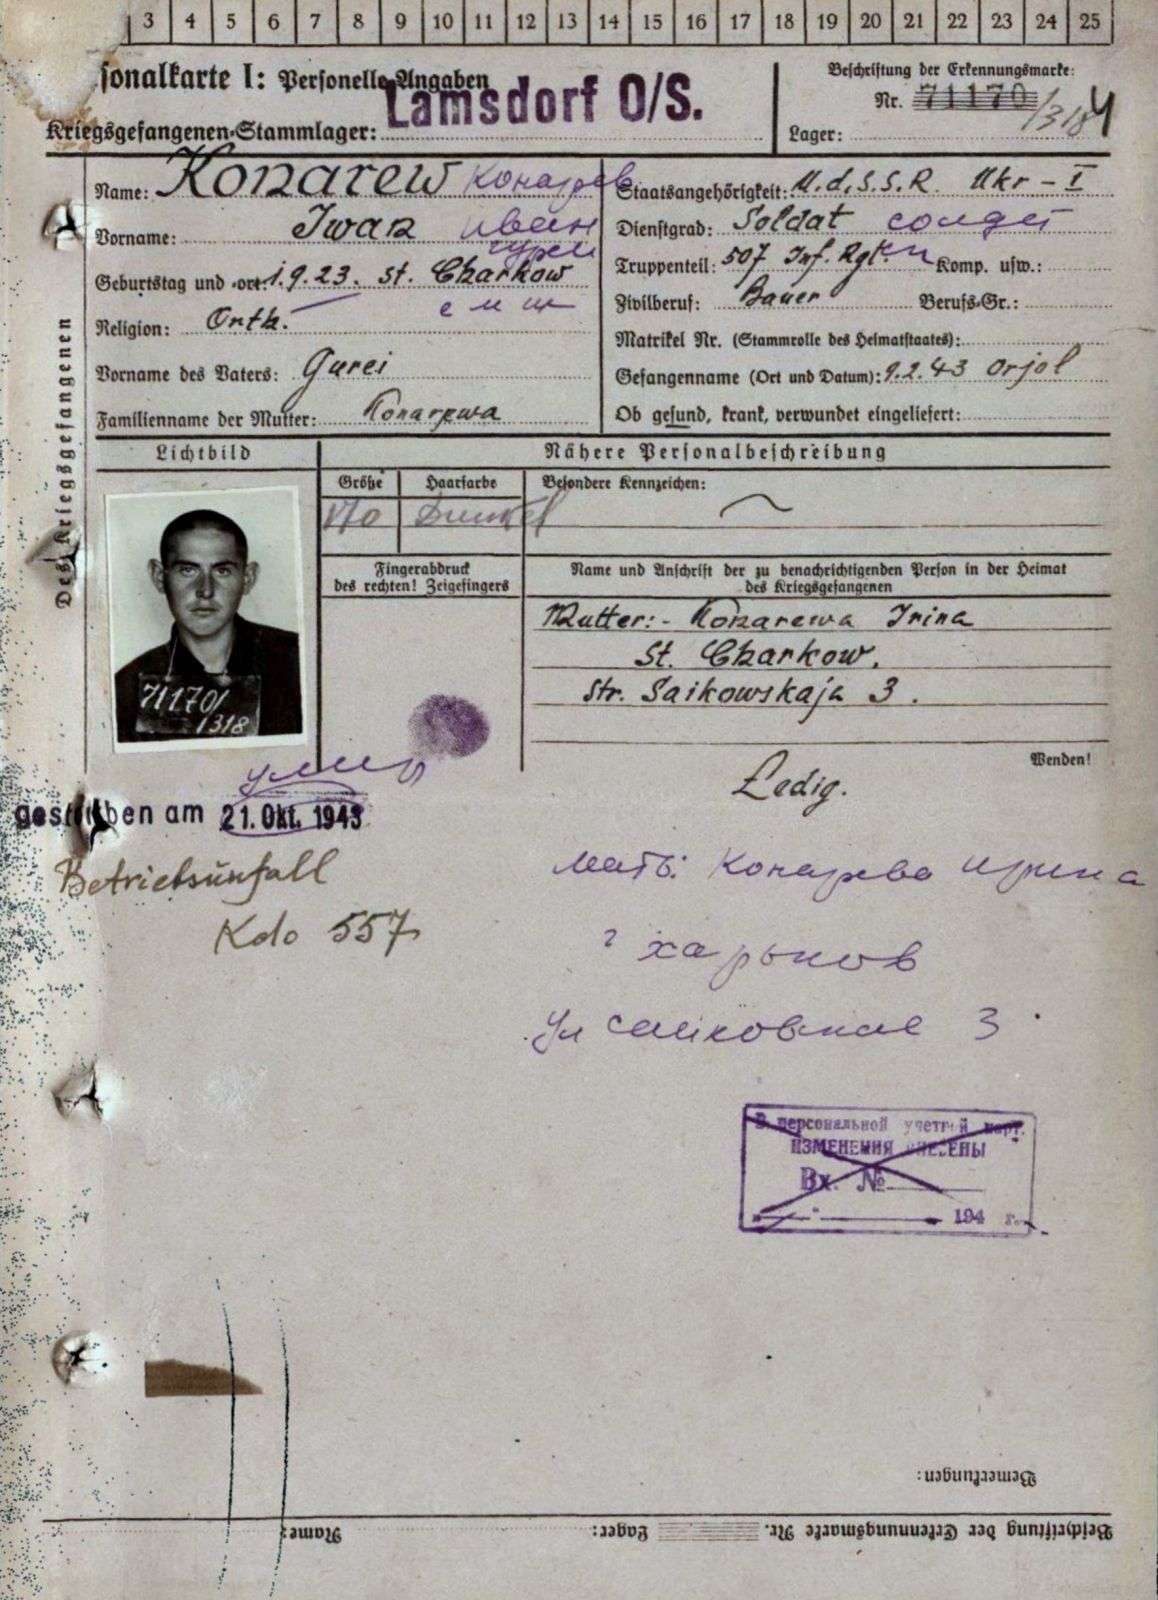 3 4 5 6 7 8 9 10 11 12 13 14 15 16 17 18 19 20 21 22 23 24 25
sonalkarte I: Personelle Angaben
Lamsdorf O/S.
Kriegsgefangenen-Stammlager:
Beschriftung der Erkennungsmarke:
Nr. 71170/318
Lager:
Des Kriegsgefangenen
Name: Konarew Конарев
Vorname: Iwan Иван
Гуреи
Geburtstag und -ort: 1.9.23. St. Charkow
Religion: Orth.
Vorname des Vaters: Gurei
Familienname der Mutter: Konarewa
Staatsangehörigkeit: U.d.S.S.R. Ukr-I
Dienstgrad: Soldat солдат
Truppenteil: 507 Inf. Rgt. Komp. usw.:
Zivilberuf: Bauer Berufs-Gr.:
Matrikel Nr. (Stammrolle des Heimatstaates):
Gefangennahme (Ort und Datum): 9.2.43 Orjol
Ob gesund, krank, verwundet eingeliefert:
Lichtbild
Nähere Personalbeschreibung
Größe Haarfarbe Besondere Kennzeichen:
170 Dunkel
Fingerabdruck
des rechten! Zeigefingers
Name und Anschrift der zu benachrichtigenden Person in der Heimat
des Kriegsgefangenen
Mutter:- Konarewa Irina
St. Charkow,
Str. Saikowskaja 3.
71170/
1318
Wenden!
Ledig.
умер
gestorben am 21. Okt. 1943
Betriebsunfall
Kdo 557
мать: Конарева Ирина
г Харьков
ул Саиковская 3
В персональной учетной карт.
ИЗМЕНЕНИЯ ВНЕСЕНЫ
Вх. №
194 г.
Bemerkungen:
Beschriftung der Erkennungsmarke Nr. Lager: Name: